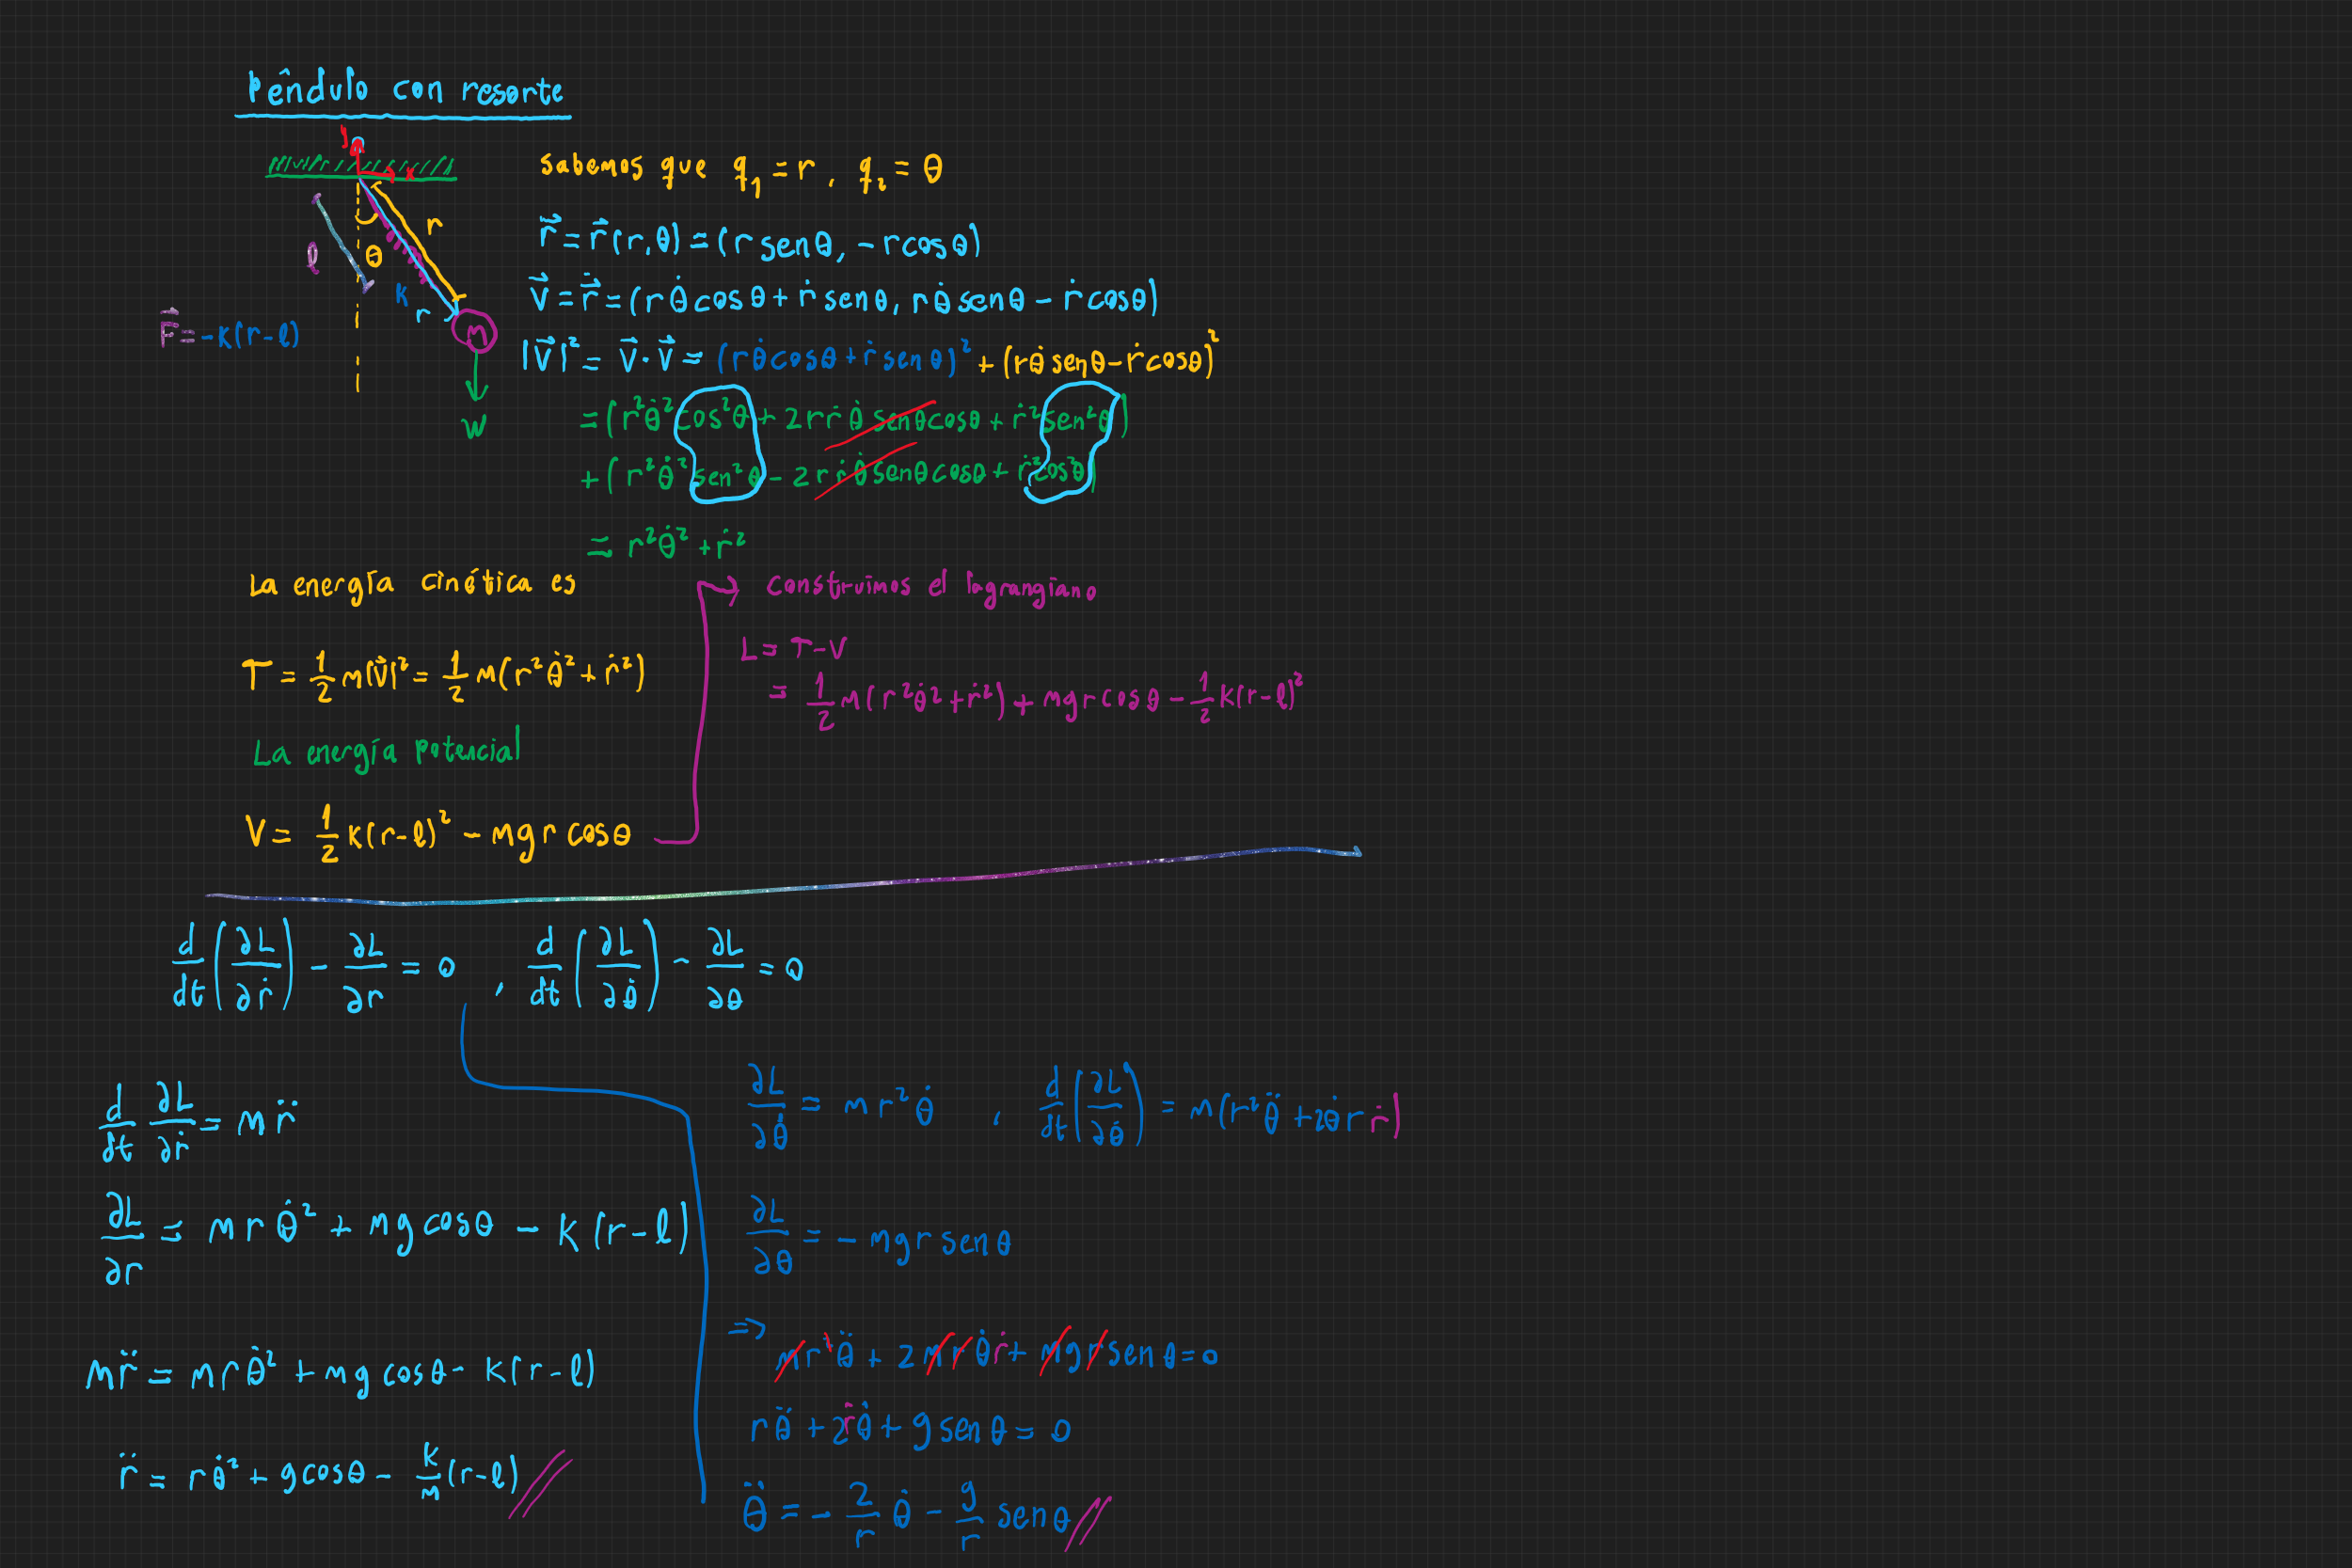 Péndulo con resorte
y
x
r
θ
l
k
r
m
W
F⃗ = -k(r-l)
Sabemos que q₁ = r, q₂ = θ
r⃗ = r⃗(r,θ) = (r senθ, -r cosθ)
v⃗ = ṙ⃗ = (rθ̇ cosθ + ṙ senθ, rθ̇ senθ - ṙ cosθ)
|v⃗|² = v⃗·v⃗ = (rθ̇ cosθ + ṙ senθ)² + (rθ̇ senθ - ṙ cosθ)²
= (r²θ̇² cos²θ + 2rṙθ̇ senθ cosθ + ṙ² sen²θ)
+ (r²θ̇² sen²θ - 2rṙθ̇ senθ cosθ + ṙ² cos²θ)
= r²θ̇² + ṙ²
La energía cinética es
T = 1/2 m|v⃗|² = 1/2 m(r²θ̇² + ṙ²)
La energía potencial
V = 1/2 k(r-l)² - mgr cosθ
Construimos el lagrangiano
L = T - V
= 1/2 m(r²θ̇² + ṙ²) + mgr cosθ - 1/2 k(r-l)²
d/dt(∂L/∂ṙ) - ∂L/∂r = 0, d/dt(∂L/∂θ̇) - ∂L/∂θ = 0
d/dt ∂L/∂ṙ = mr̈
∂L/∂r = mrθ̇² + mg cosθ - k(r-l)
mr̈ = mrθ̇² + mg cosθ - k(r-l)
r̈ = rθ̇² + g cosθ - k/m (r-l)
∂L/∂θ̇ = mr²θ̇, d/dt(∂L/∂θ̇) = m(r²θ̈ + 2θ̇rṙ)
∂L/∂θ = -mgr senθ
=>
mr²θ̈ + 2mrθ̇ṙ + mgr senθ = 0
rθ̈ + 2ṙθ̇ + g senθ = 0
θ̈ = -2/r θ̇ - g/r senθ